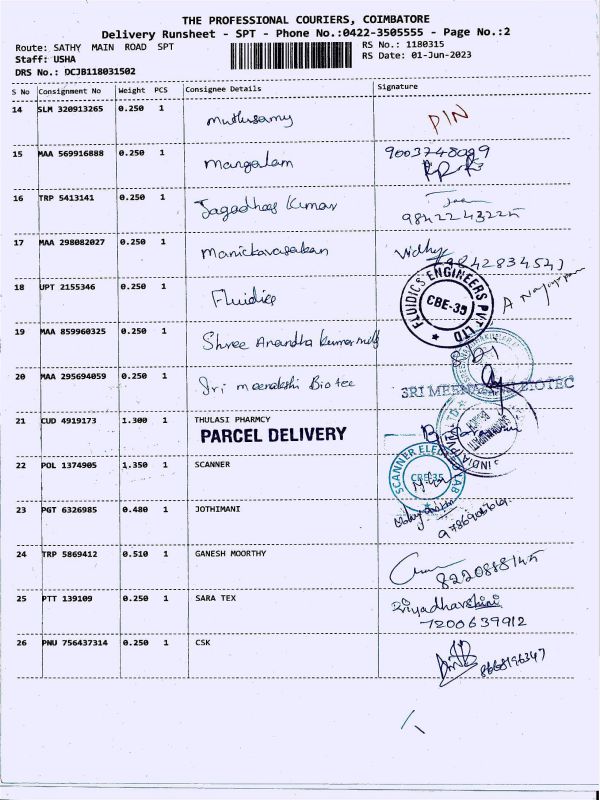 THE PROFESSIONAL COURIERS, COIMBATORE
Delivery Runsheet - SPT - Phone No.:0422-3505555 - Page No.:2
Route: SATHY MAIN ROAD SPT
RS No.: 1180315
Staff: USHA
RS Date: 01-Jun-2023
DRS No.: DCJB118031502
S No Consignment No Weight PCS Consignee Details Signature
14 SLM 320913265 0.250 1 Muthusamy PIN
15 MAA 569916888 0.250 1 Mangalam
16 TRP 5413141 0.250 1 Jagadhees Kumar
9842243225
17 MAA 298082027 0.250 1 Manickavasakan Vidhy
9842834543
18 UPT 2155346 0.250 1 Fluidics
FLUIDICS ENGINEERS PVT LTD
CBE-35
19 MAA 859960325 0.250 1 Shree Anandha Kumar mills
20 MAA 295694059 0.250 1 Sri meenakshi Biotec
SRI MEENAKSHI BIOTEC
21 CUD 4919173 1.300 1 THULASI PHARMCY
PARCEL DELIVERY
22 POL 1374905 1.350 1 SCANNER
SCANNER ELEC LAB
CBE-35
23 PGT 6326985 0.480 1 JOTHIMANI
24 TRP 5869412 0.510 1 GANESH MOORTHY
8220888145
25 PTT 139109 0.250 1 SARA TEX Priyadharshini
7200639912
26 PNU 756437314 0.250 1 CSK
8668196347